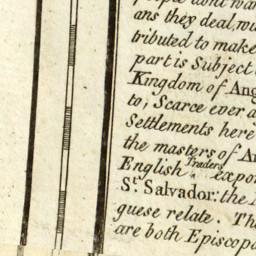 ans they deal,
tributed to make
part is Subject
Kingdom of
to; Scarce ever a
Settlements here
the masters of
English Traders
St. Salvador: the
guese relate. Th
are both Episcopa